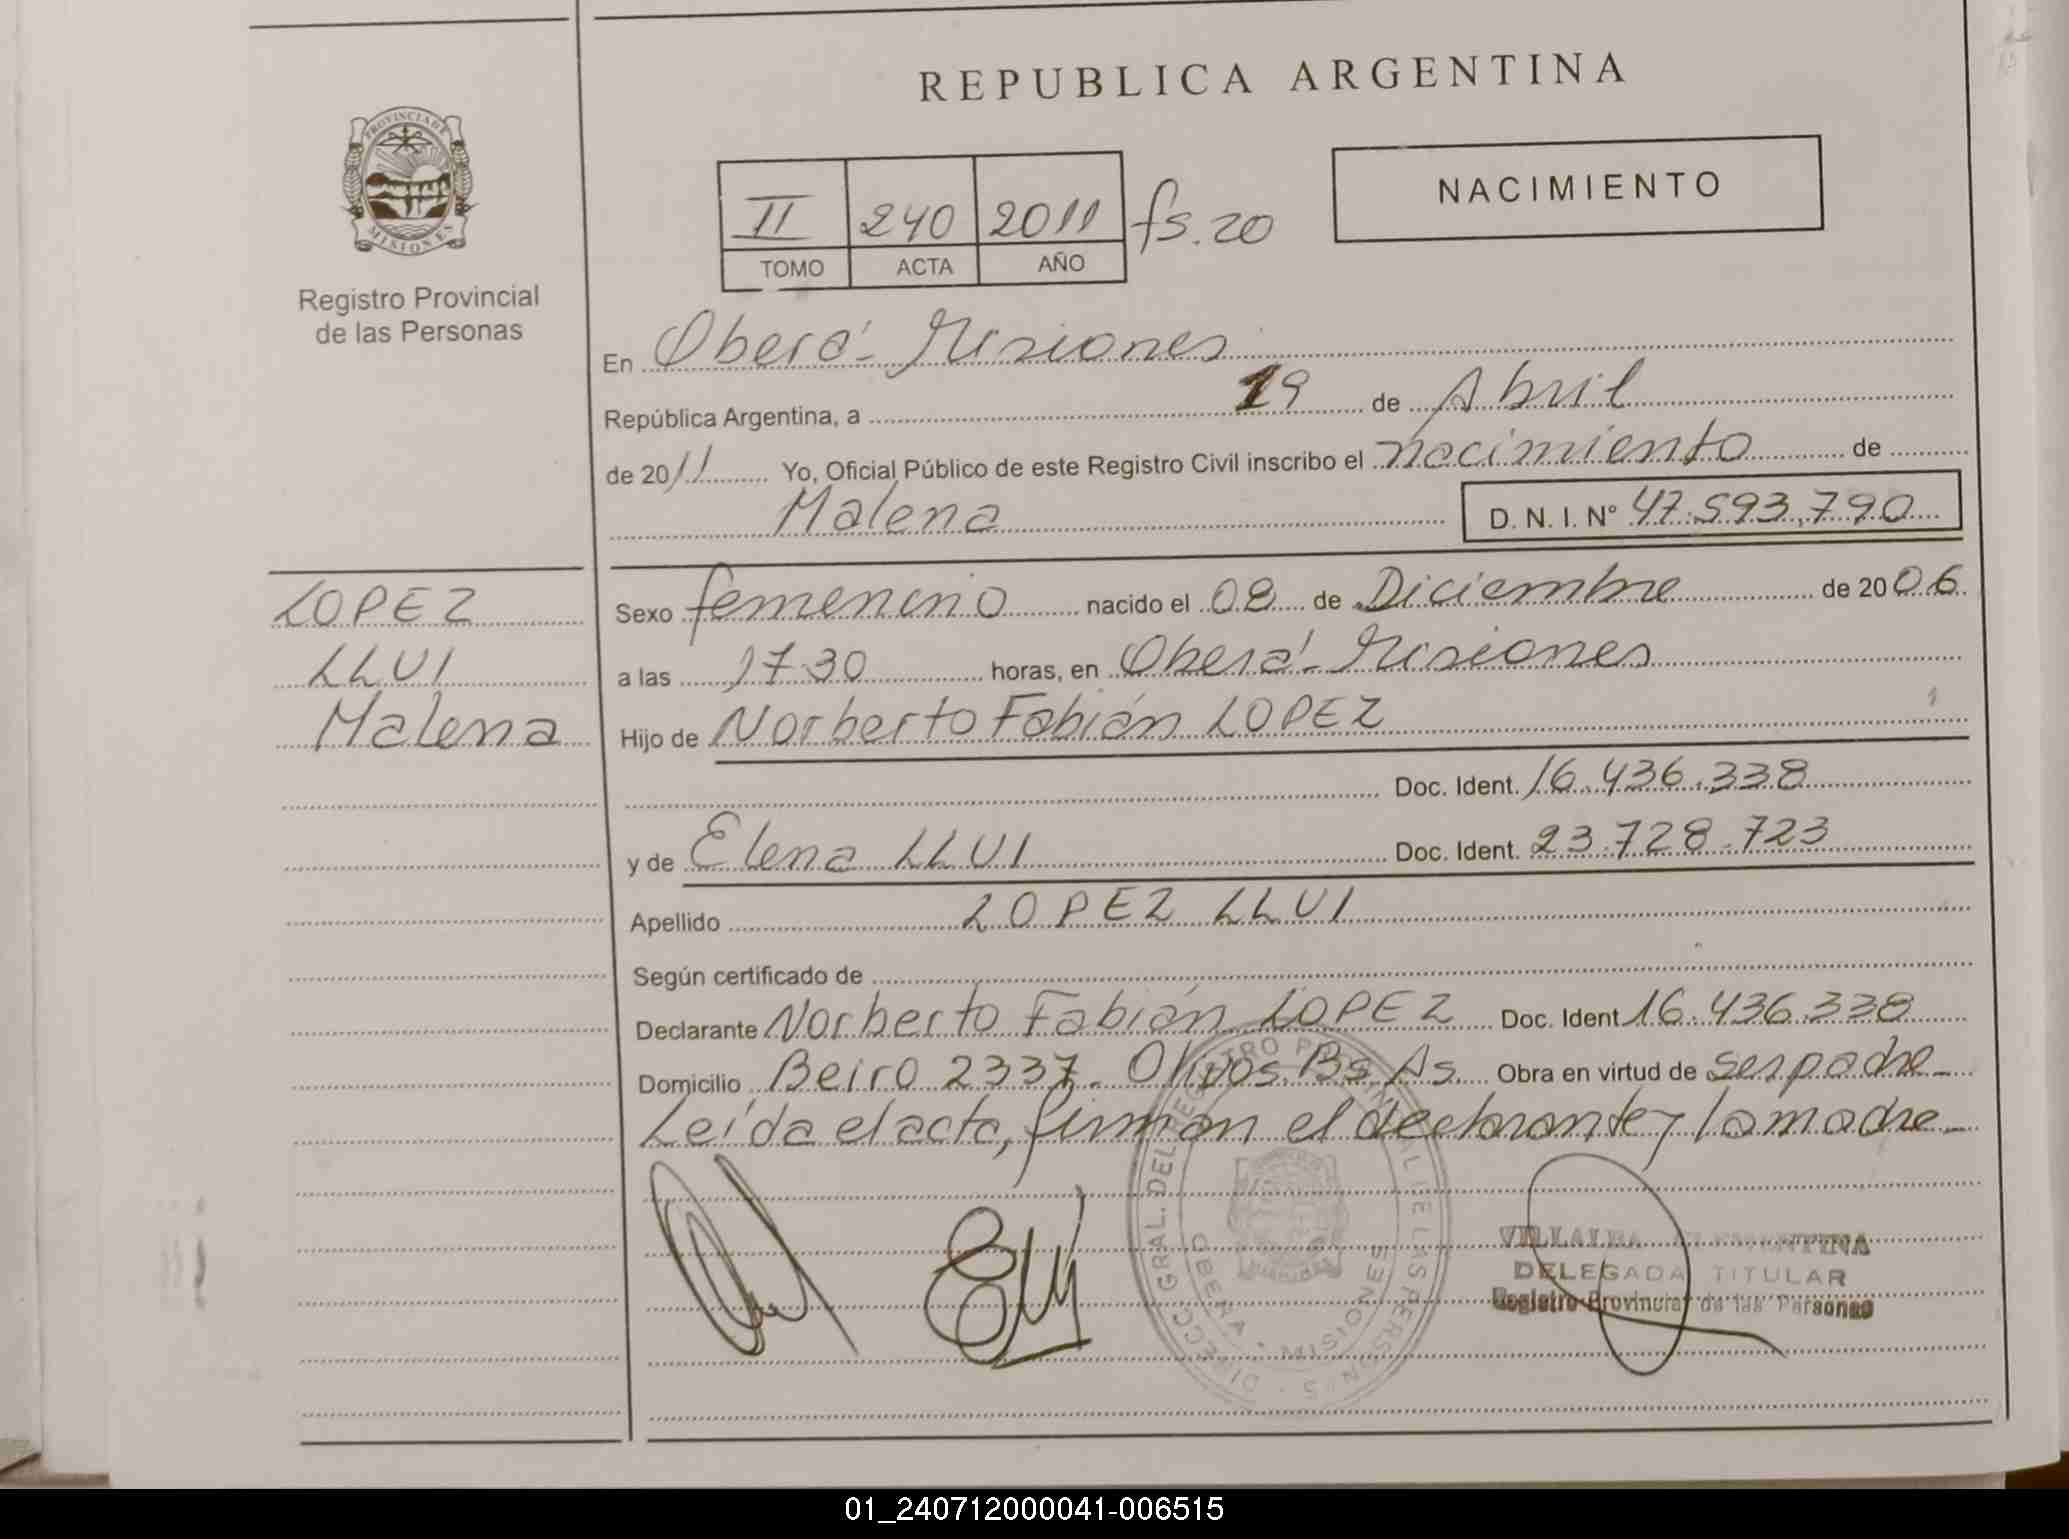 REPUBLICA ARGENTINA
PROVINCIA DE
MISIONES
Registro Provincial
de las Personas
NACIMIENTO
II 240 2011 fs. 20
TOMO ACTA AÑO
En Oberá - Misiones
República Argentina, a 19 de Abril
de 2011 Yo, Oficial Público de este Registro Civil inscribo el nacimiento de
Malena D. N. I. Nº 47.593.790
LOPEZ
LLUI
Malena
Sexo femenino nacido el 08 de Diciembre de 2006
a las 17.30 horas, en Oberá - Misiones
Hijo de Norberto Fabián LOPEZ
Doc. Ident. 16.436.338
y de Elena LLUI Doc. Ident. 23.728.723
Apellido LOPEZ LLUI
Según certificado de
Declarante Norberto Fabián LOPEZ Doc. Ident 16.436.338
Domicilio Beiro 2337. Olivos. Bs As. Obra en virtud de ser padre -
Leída el acta, firman el declarante y la madre -
VILLALBA CLEMENTINA
DELEGADA TITULAR
Registro Provincial de las Personas
01_240712000041-006515